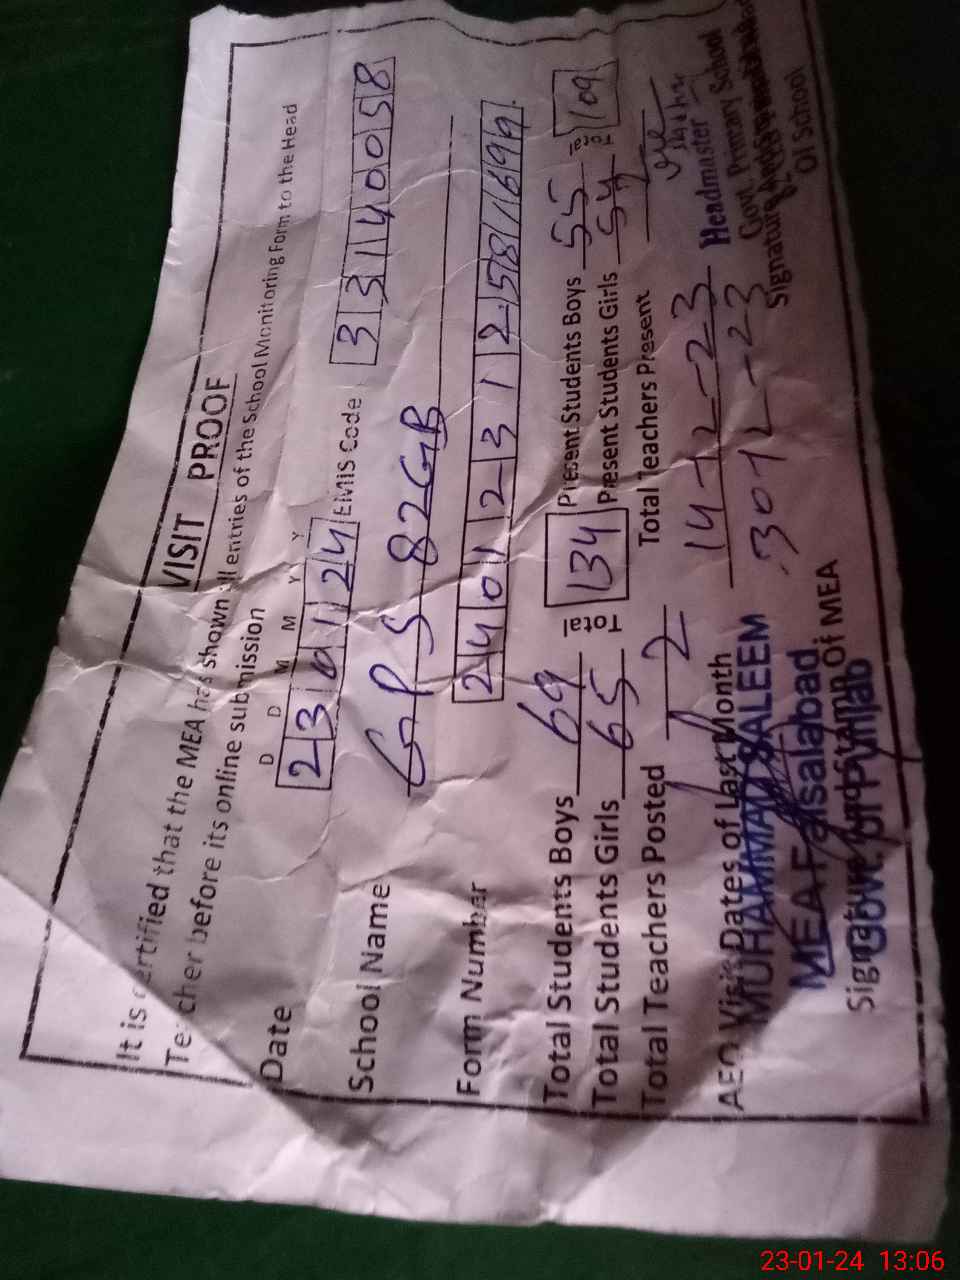 VISIT PROOF
It is certified that the MEA has shown all entries of the School Monitoring Form to the Head
Teacher before its online submission
D D M M Y Y
Date 230124 EMIS Code 33140058
School Name GPS 82GB
Form Number
Total Students Boys 69 Total 134 Present Students Boys 55 Total 109
Total Students Girls 65 Present Students Girls 54
Total Teachers Posted 2 Total Teachers Present 2
AEO Visit Dates of Last Month 14-12-23
30-12-23
MUHAMMAD SALEEM
MEA Faisalabad
Govt. of Punjab
Signature and Stamp Of MEA
Headmaster
Govt. Primary School
Signature
Of School
23-01-24 13:06